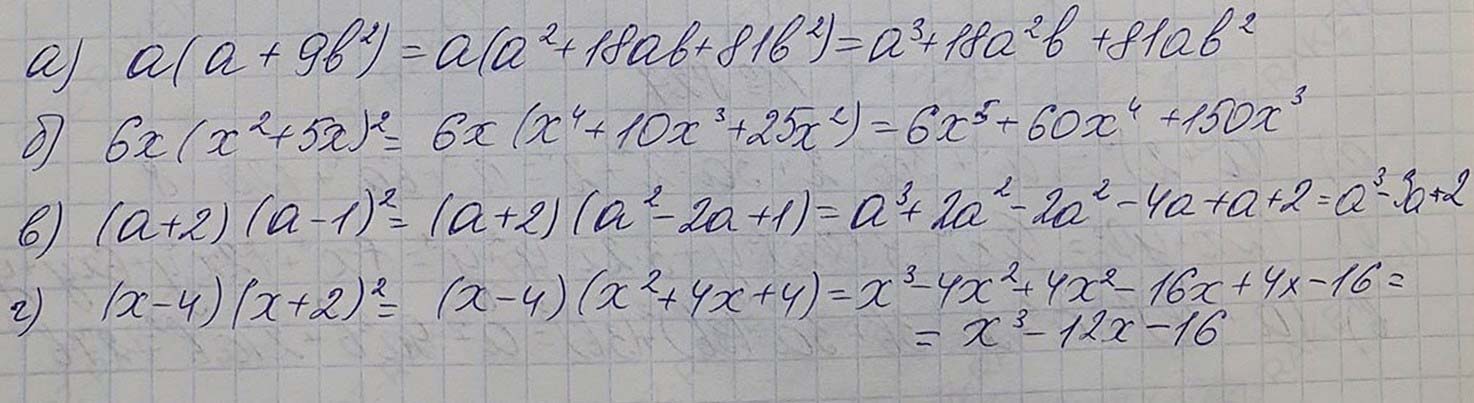 а) a(a + 9b²) = a(a² + 18ab + 81b²) = a³ + 18a²b + 81ab²
б) 6x(x² + 5x)² = 6x(x⁴ + 10x³ + 25x²) = 6x⁵ + 60x⁴ + 150x³
в) (a+2)(a-1)² = (a+2)(a² - 2a + 1) = a³ + 2a² - 2a² - 4a + a + 2 = a³ - 3a + 2
г) (x-4)(x+2)² = (x-4)(x² + 4x + 4) = x³ - 4x² + 4x² - 16x + 4x - 16 =
= x³ - 12x - 16